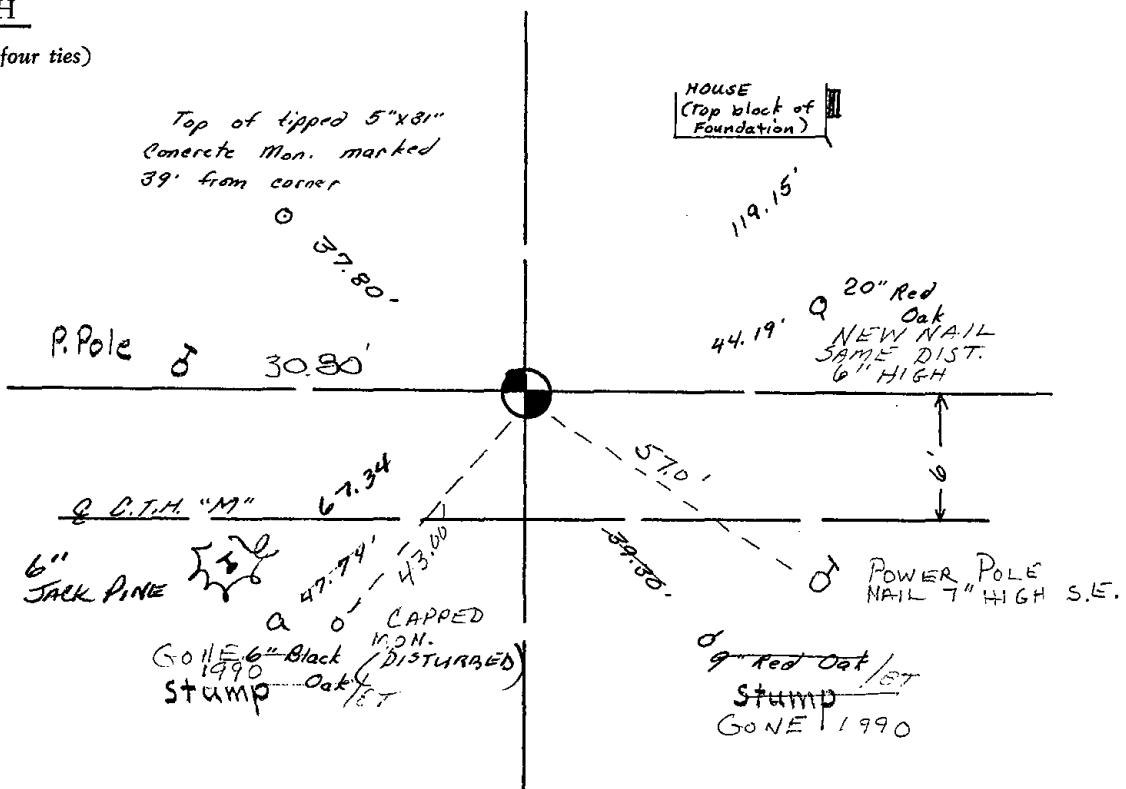 H
four ties)
Top of tipped 5"x31"
Concrete Mon. marked
39' from corner
37.80'
HOUSE
(Top block of
Foundation)
119.15'
P. Pole
30.80'
44.19'
20" Red
Oak
NEW NAIL
SAME DIST.
6" HIGH
57.0'
6'
℄ C.T.H. "M"
67.34
6"
JACK PINE
47.74'
43.00'
39.30'
POWER POLE
NAIL 7" HIGH S.E.
CAPPED
MON.
(DISTURBED)
GONE 6" Black
1990
Oak/ET
stump
9" Red Oak/ET
stump
GONE 1990